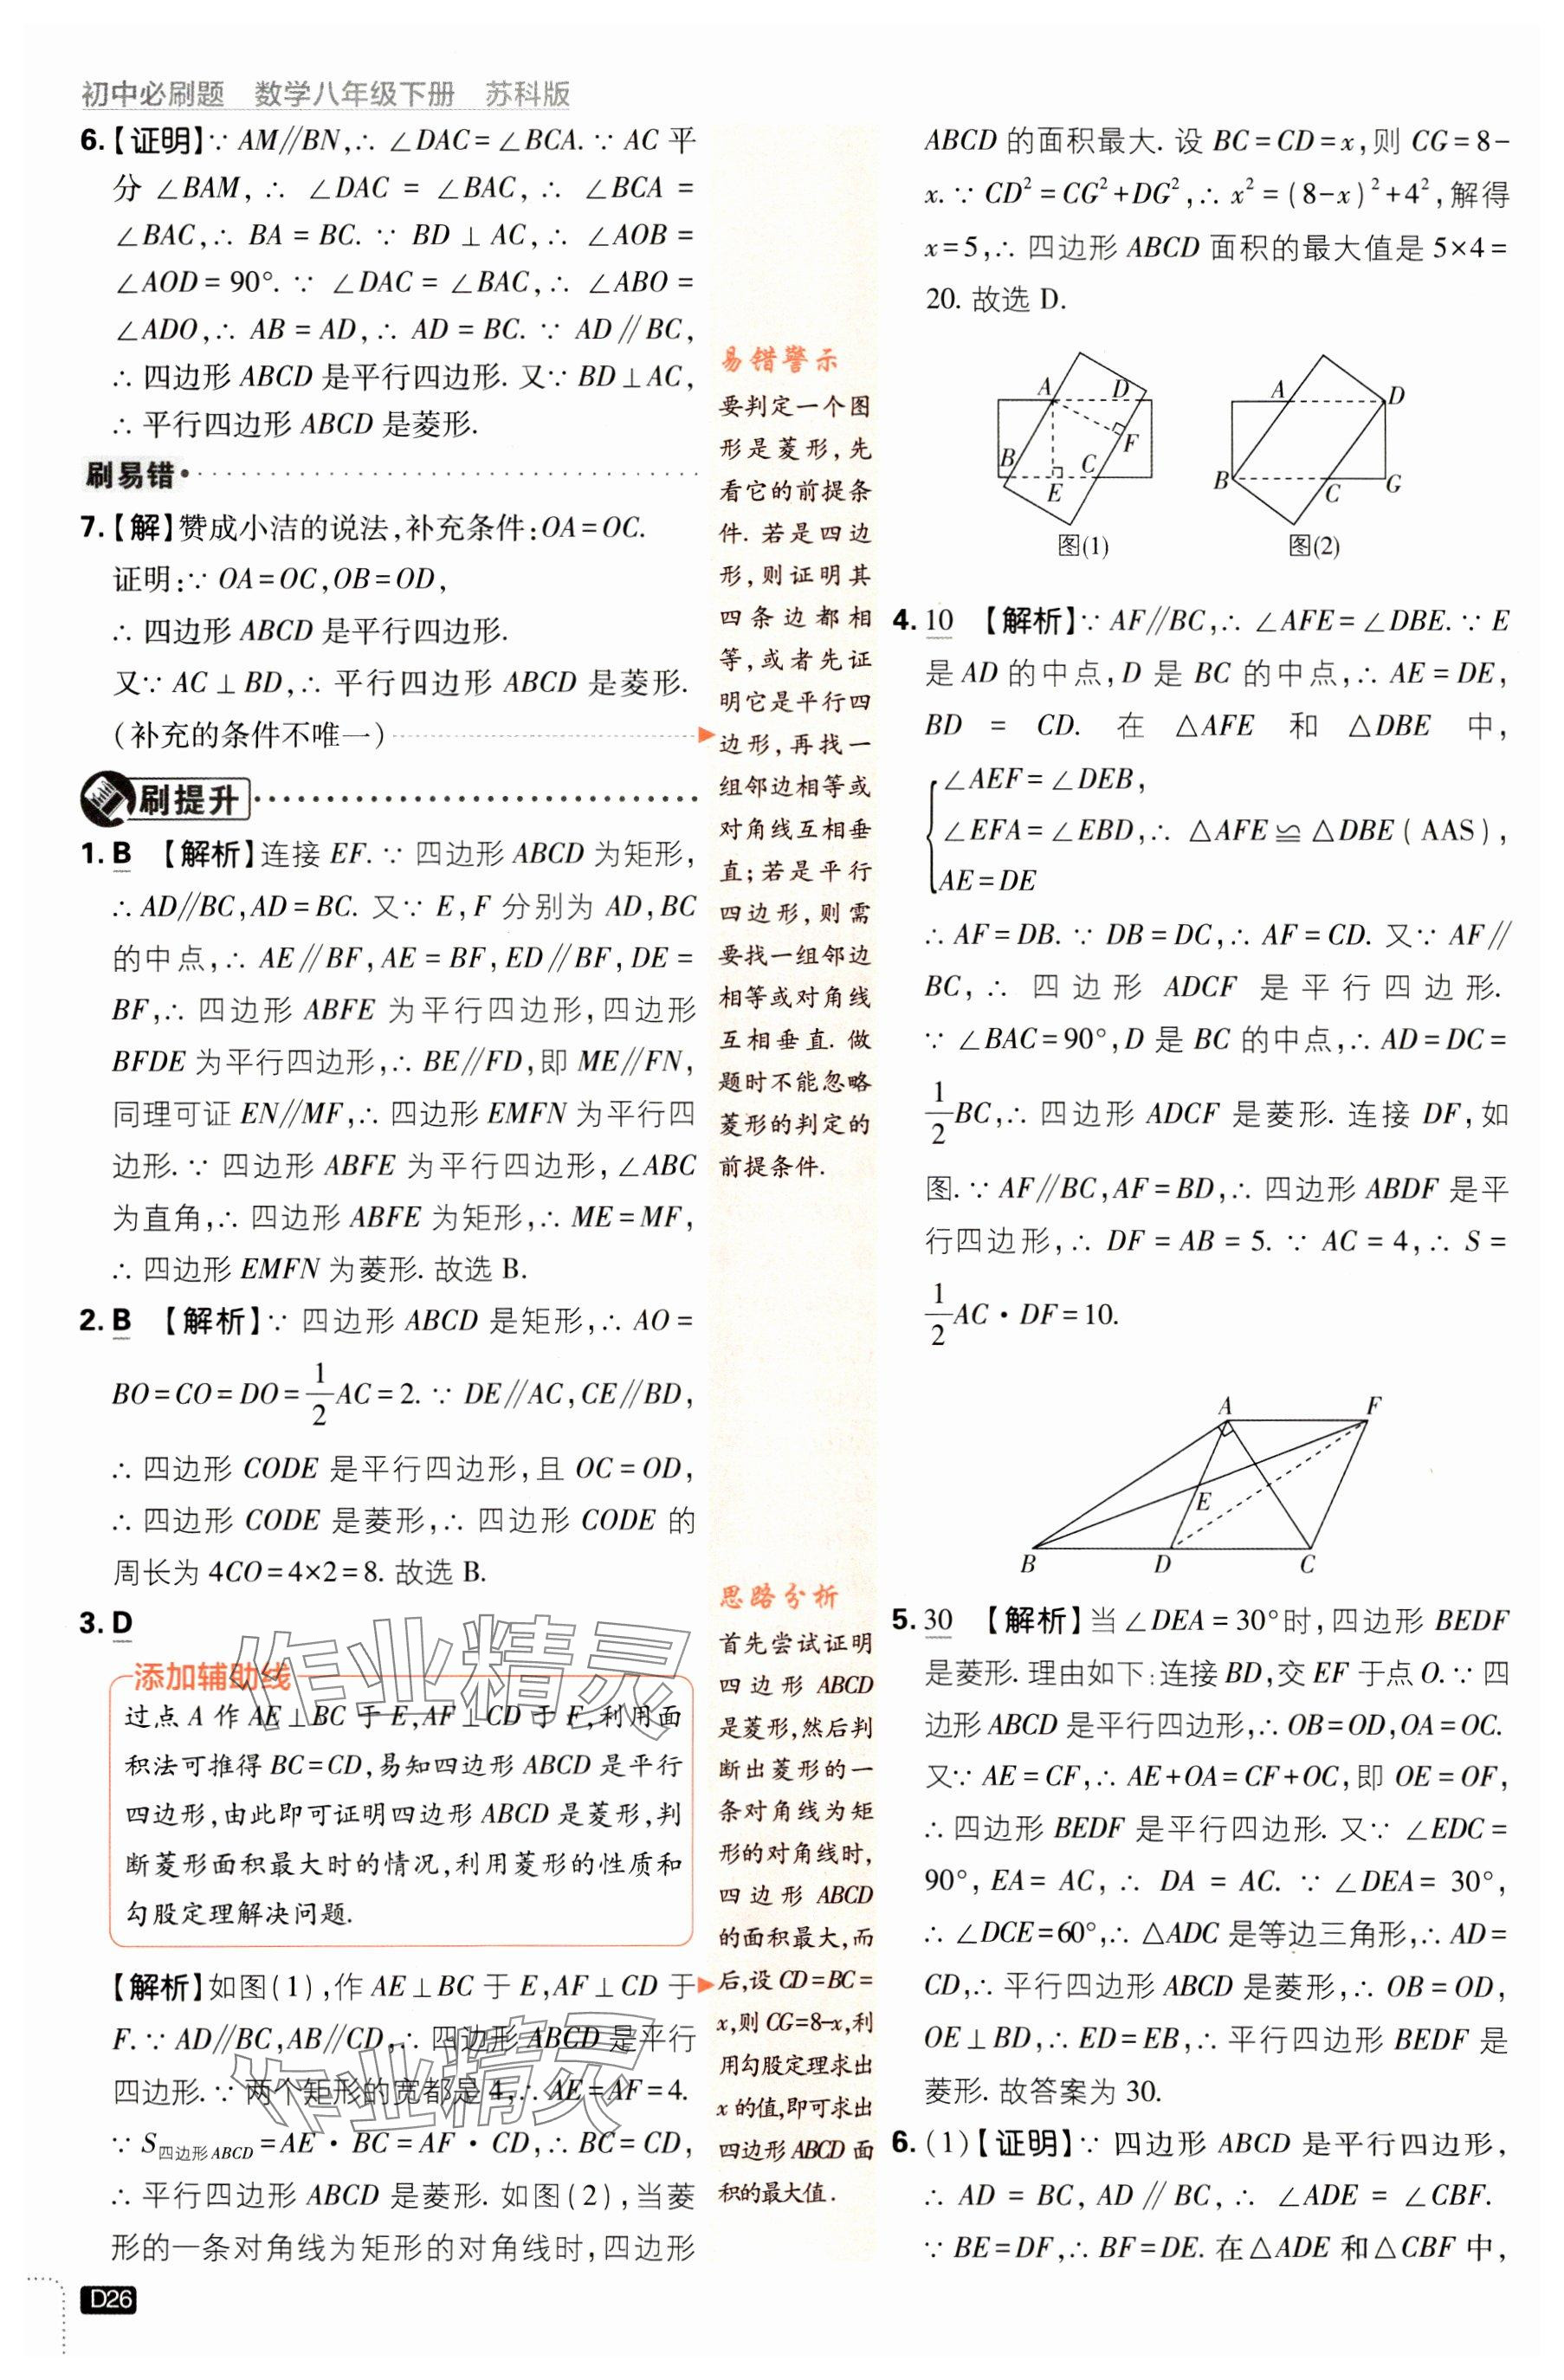 初中必刷题 数学八年级下册 苏科版
6.【证明】∵ AM∥BN,∴ ∠DAC=∠BCA. ∵ AC 平
分 ∠BAM, ∴ ∠DAC = ∠BAC, ∴ ∠BCA =
∠BAC,∴ BA = BC. ∵ BD ⊥ AC,∴ ∠AOB =
∠AOD = 90°. ∵ ∠DAC = ∠BAC,∴ ∠ABO =
∠ADO,∴ AB = AD,∴ AD = BC. ∵ AD∥BC,
∴ 四边形 ABCD 是平行四边形. 又∵ BD⊥AC,
∴ 平行四边形 ABCD 是菱形.
刷易错
7.【解】赞成小洁的说法,补充条件:OA=OC.
证明:∵ OA=OC,OB=OD,
∴ 四边形 ABCD 是平行四边形.
又∵ AC⊥BD,∴ 平行四边形 ABCD 是菱形.
(补充的条件不唯一)
刷提升
1. B 【解析】连接 EF. ∵ 四边形 ABCD 为矩形,
∴ AD∥BC,AD=BC. 又∵ E,F 分别为 AD,BC
的中点,∴ AE∥BF,AE=BF,ED∥BF,DE=
BF,∴ 四边形 ABFE 为平行四边形,四边形
BFDE 为平行四边形,∴ BE∥FD,即 ME∥FN,
同理可证 EN∥MF,∴ 四边形 EMFN 为平行四
边形. ∵ 四边形 ABFE 为平行四边形,∠ABC
为直角,∴ 四边形 ABFE 为矩形,∴ ME=MF,
∴ 四边形 EMFN 为菱形. 故选 B.
2. B 【解析】∵ 四边形 ABCD 是矩形,∴ AO=
BO=CO=DO=1/2AC=2. ∵ DE∥AC,CE∥BD,
∴ 四边形 CODE 是平行四边形,且 OC=OD,
∴ 四边形 CODE 是菱形,∴ 四边形 CODE 的
周长为 4CO=4×2=8. 故选 B.
3. D
添加辅助线
过点 A 作 AE⊥BC 于 E,AF⊥CD 于 F,利用面
积法可推得 BC=CD,易知四边形 ABCD 是平行
四边形,由此即可证明四边形 ABCD 是菱形,判
断菱形面积最大时的情况,利用菱形的性质和
勾股定理解决问题.
【解析】如图(1),作 AE⊥BC 于 E,AF⊥CD 于
F. ∵ AD∥BC,AB∥CD,∴ 四边形 ABCD 是平行
四边形. ∵ 两个矩形的宽都是 4,∴ AE=AF=4.
∵ S四边形ABCD=AE·BC=AF·CD,∴ BC=CD,
∴ 平行四边形 ABCD 是菱形. 如图(2),当菱
形的一条对角线为矩形的对角线时,四边形
D26
易错警示
要判定一个图
形是菱形,先
看它的前提条
件. 若是四边
形,则证明其
四条边都相
等,或者先证
明它是平行四
边形,再找一
组邻边相等或
对角线互相垂
直;若是平行
四边形,则需
要找一组邻边
相等或对角线
互相垂直. 做
题时不能忽略
菱形的判定的
前提条件.
思路分析
首先尝试证明
四边形 ABCD
是菱形,然后判
断出菱形的一
条对角线为矩
形的对角线时,
四边形 ABCD
的面积最大,而
后,设 CD=BC=
x,则 CG=8-x,利
用勾股定理求出
x 的值,即可求出
四边形 ABCD 面
积的最大值.
ABCD 的面积最大. 设 BC=CD=x,则 CG=8-
x. ∵ CD²=CG²+DG²,∴ x²=(8-x)²+4²,解得
x=5,∴ 四边形 ABCD 面积的最大值是 5×4=
20. 故选 D.
A D B C E F
图(1)
A D B C G
图(2)
4. 10 【解析】∵ AF∥BC,∴ ∠AFE=∠DBE. ∵ E
是 AD 的中点,D 是 BC 的中点,∴ AE=DE,
BD = CD. 在 △AFE 和 △DBE 中,
∠AEF=∠DEB,
∠EFA=∠EBD,∴ △AFE≌△DBE(AAS),
AE=DE
∴ AF=DB. ∵ DB=DC,∴ AF=CD. 又∵ AF∥
BC,∴ 四边形 ADCF 是平行四边形.
∵ ∠BAC=90°,D 是 BC 的中点,∴ AD=DC=
1/2BC,∴ 四边形 ADCF 是菱形. 连接 DF,如
图. ∵ AF∥BC,AF=BD,∴ 四边形 ABDF 是平
行四边形,∴ DF=AB=5. ∵ AC=4,∴ S=
1/2AC·DF=10.
A F E B D C
5. 30 【解析】当∠DEA=30°时,四边形 BEDF
是菱形. 理由如下:连接 BD,交 EF 于点 O. ∵ 四
边形 ABCD 是平行四边形,∴ OB=OD,OA=OC.
又∵ AE=CF,∴ AE+OA=CF+OC,即 OE=OF,
∴ 四边形 BEDF 是平行四边形. 又∵ ∠EDC=
90°, EA= AC, ∴ DA = AC. ∵ ∠DEA= 30°,
∴ ∠DCE=60°,∴ △ADC 是等边三角形,∴ AD=
CD,∴ 平行四边形 ABCD 是菱形,∴ OB=OD,
OE⊥BD,∴ ED=EB,∴ 平行四边形 BEDF 是
菱形. 故答案为 30.
6. (1)【证明】∵ 四边形 ABCD 是平行四边形,
∴ AD = BC, AD∥BC,∴ ∠ADE = ∠CBF.
∵ BE=DF,∴ BF=DE. 在△ADE 和△CBF 中,
作业精灵
作业精灵